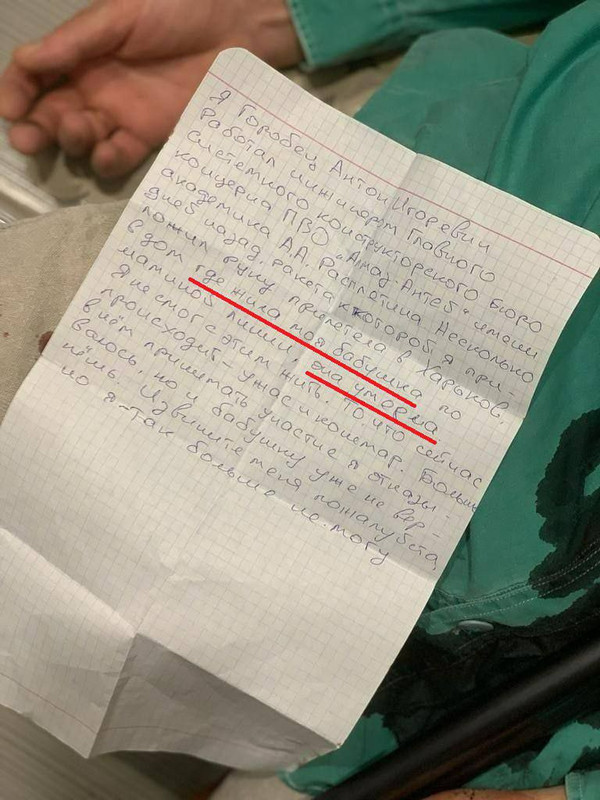 Я Горобец Антон Игоревич
работал инжинером Главного
системного конструкторского Бюро
концерна ПВО „Алмаз-Антей" имени
академика А.А. Расплетина Несколько
дней назад ракета к которой я при-
ложил руку прилетела в Харьков,
в дом где жила моя бабушка по
маминой линии, она умерла
Я не смог с этим жить. То что сейчас
происходит – ужас и кошмар. Больше
в нём принимать участие я отказы-
ваюсь, но и бабушку уже не вер-
нёшь. Извините меня пожалуйста,
но я так больше не могу